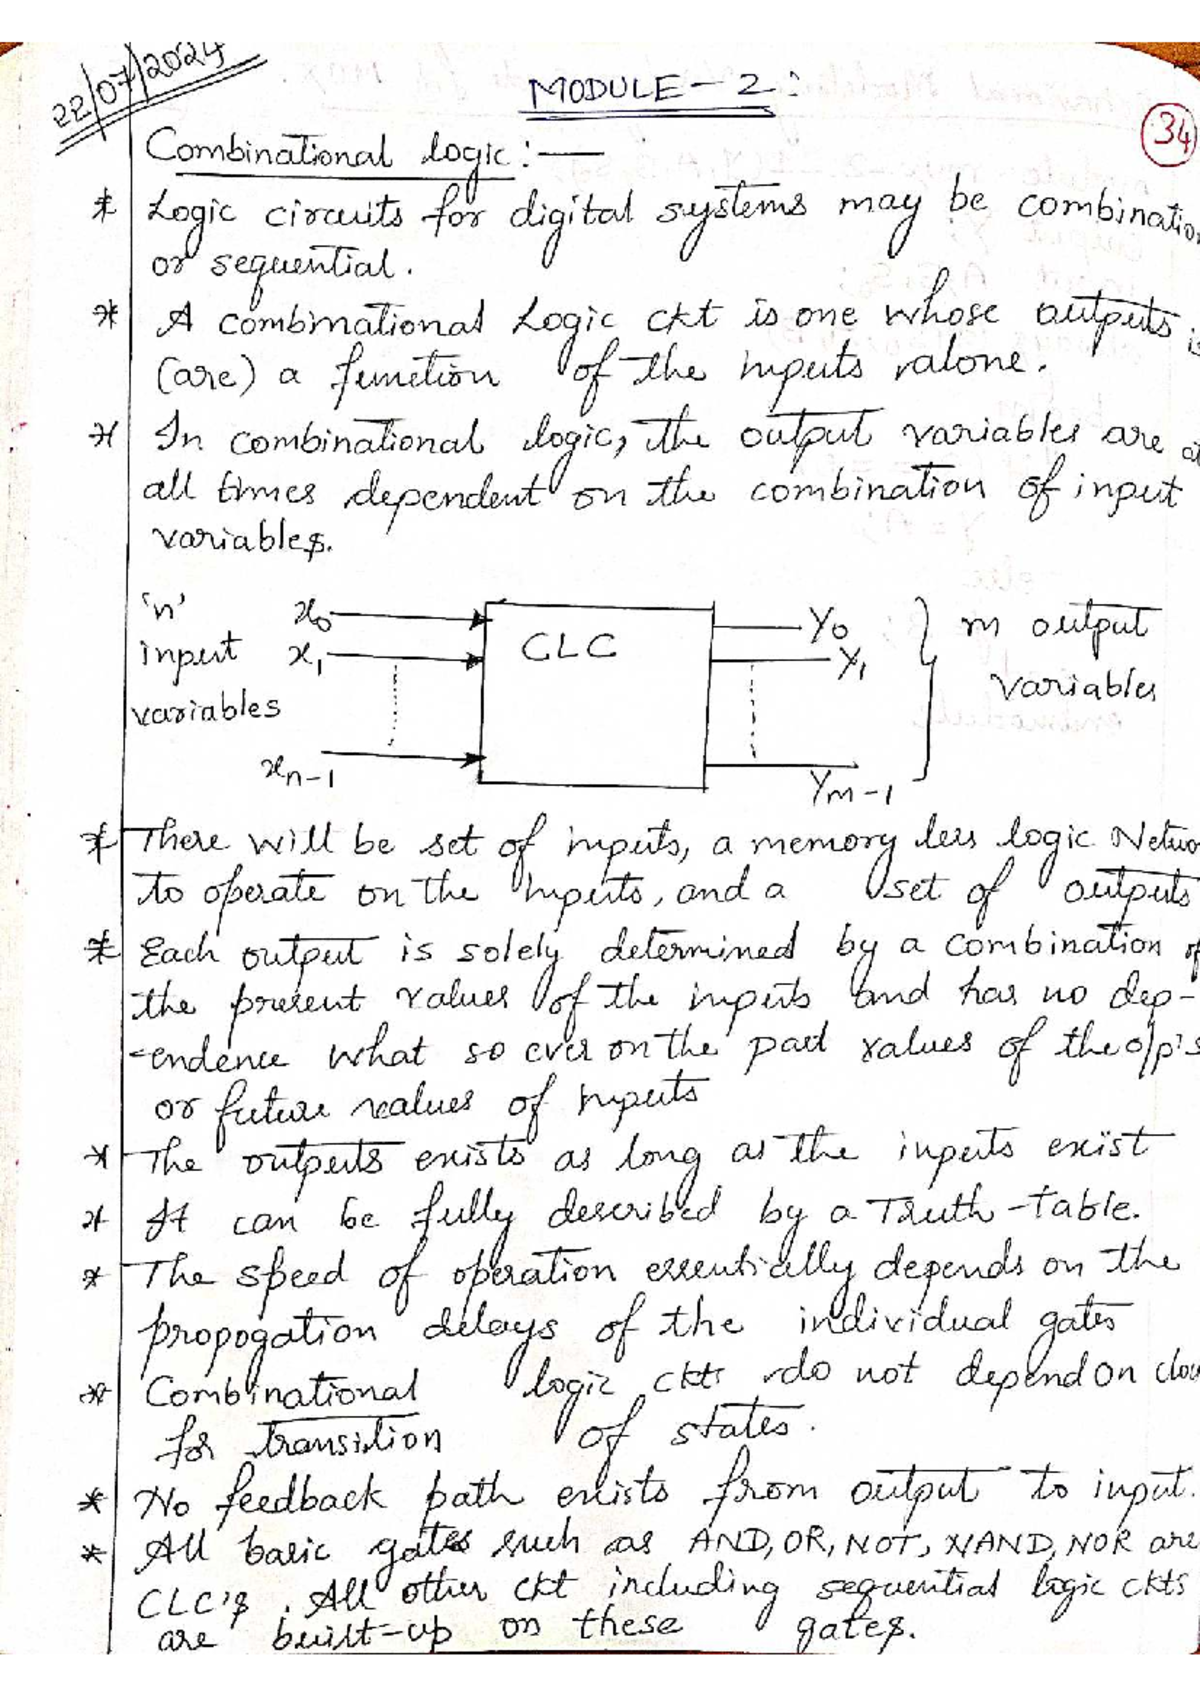 22/07/2024
MODULE - 2 :
34
Combinational logic :—
* Logic circuits for digital systems may be combination
or sequential.
* A combinational Logic ckt is one whose outputs is
(are) a function of the inputs alone.
* In combinational logic, the output variables are at
all times dependent on the combination of input
variables.
'n'
input
variables
x0
x1
xn-1
CLC
Y0
Y1
Ym-1
m output
variables
* There will be set of inputs, a memory less logic Networ
to operate on the inputs, and a set of outputs
* Each output is solely determined by a combination of
the present values of the inputs and has no dep-
-endence what so ever on the past values of the o/p's
or future values of inputs
* The outputs exists as long as the inputs exist
* It can be fully described by a Truth-table.
* The speed of operation essentially depends on the
propogation delays of the individual gates
* Combinational logic ckts do not depend on cloc
for transition of states.
* No feedback path exists from output to input.
* All basic gates such as AND, OR, NOT, NAND, NOR are
CLC's. All other ckt including sequential logic ckts
are built-up on these gates.